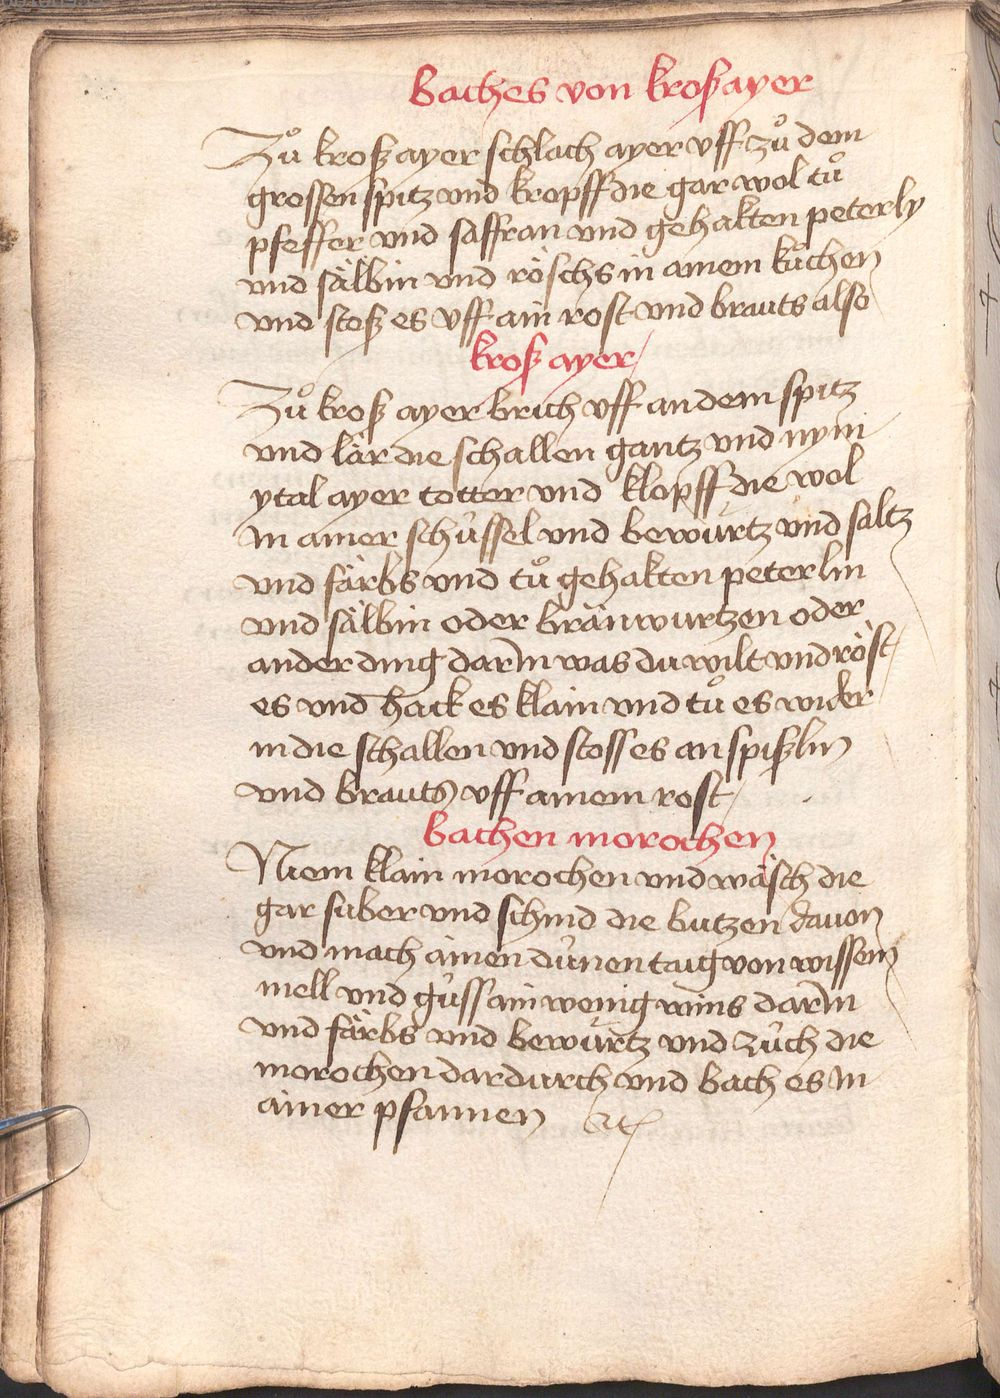 Baches von kroß ayer
Zů kroß ayer schlach ayer vff zů dem
grossen spitz vnd kropff die gar wol tů
pfeffer vnd saffran vnd gehakten peterly
vnd sälbin vnd röschs in ainem kůchen
vnd stoß es vff ain rost vnd brauts also
kroß ayer
Zů kroß ayer brich vff an dem spitz
vnd lär die schallen gantz vnd nym
ytal ayer totter vnd klopff die wol
In ainer schüssel vnd bewürtz vnd saltz
vnd färbs vnd tů gehakten peterlin
vnd sälbin oder bränwurtzen oder
ander ding darIn was du wilt vnd röst
es vnd hack es klain vnd tů es wider
in die schallen vnd stoss es an spißlin
vnd brauts vff ainem rost
bachen morochen
Niem klain morochen vnd wäsch die
gar suber vnd schnid die butzen dauon
vnd mach ainen dünen taig von wissem
mell vnd güss ain wenig wins darIn
vnd färbs vnd bewürtz vnd züch die
morochen dardurch vnd bach es In
ainer pfannen